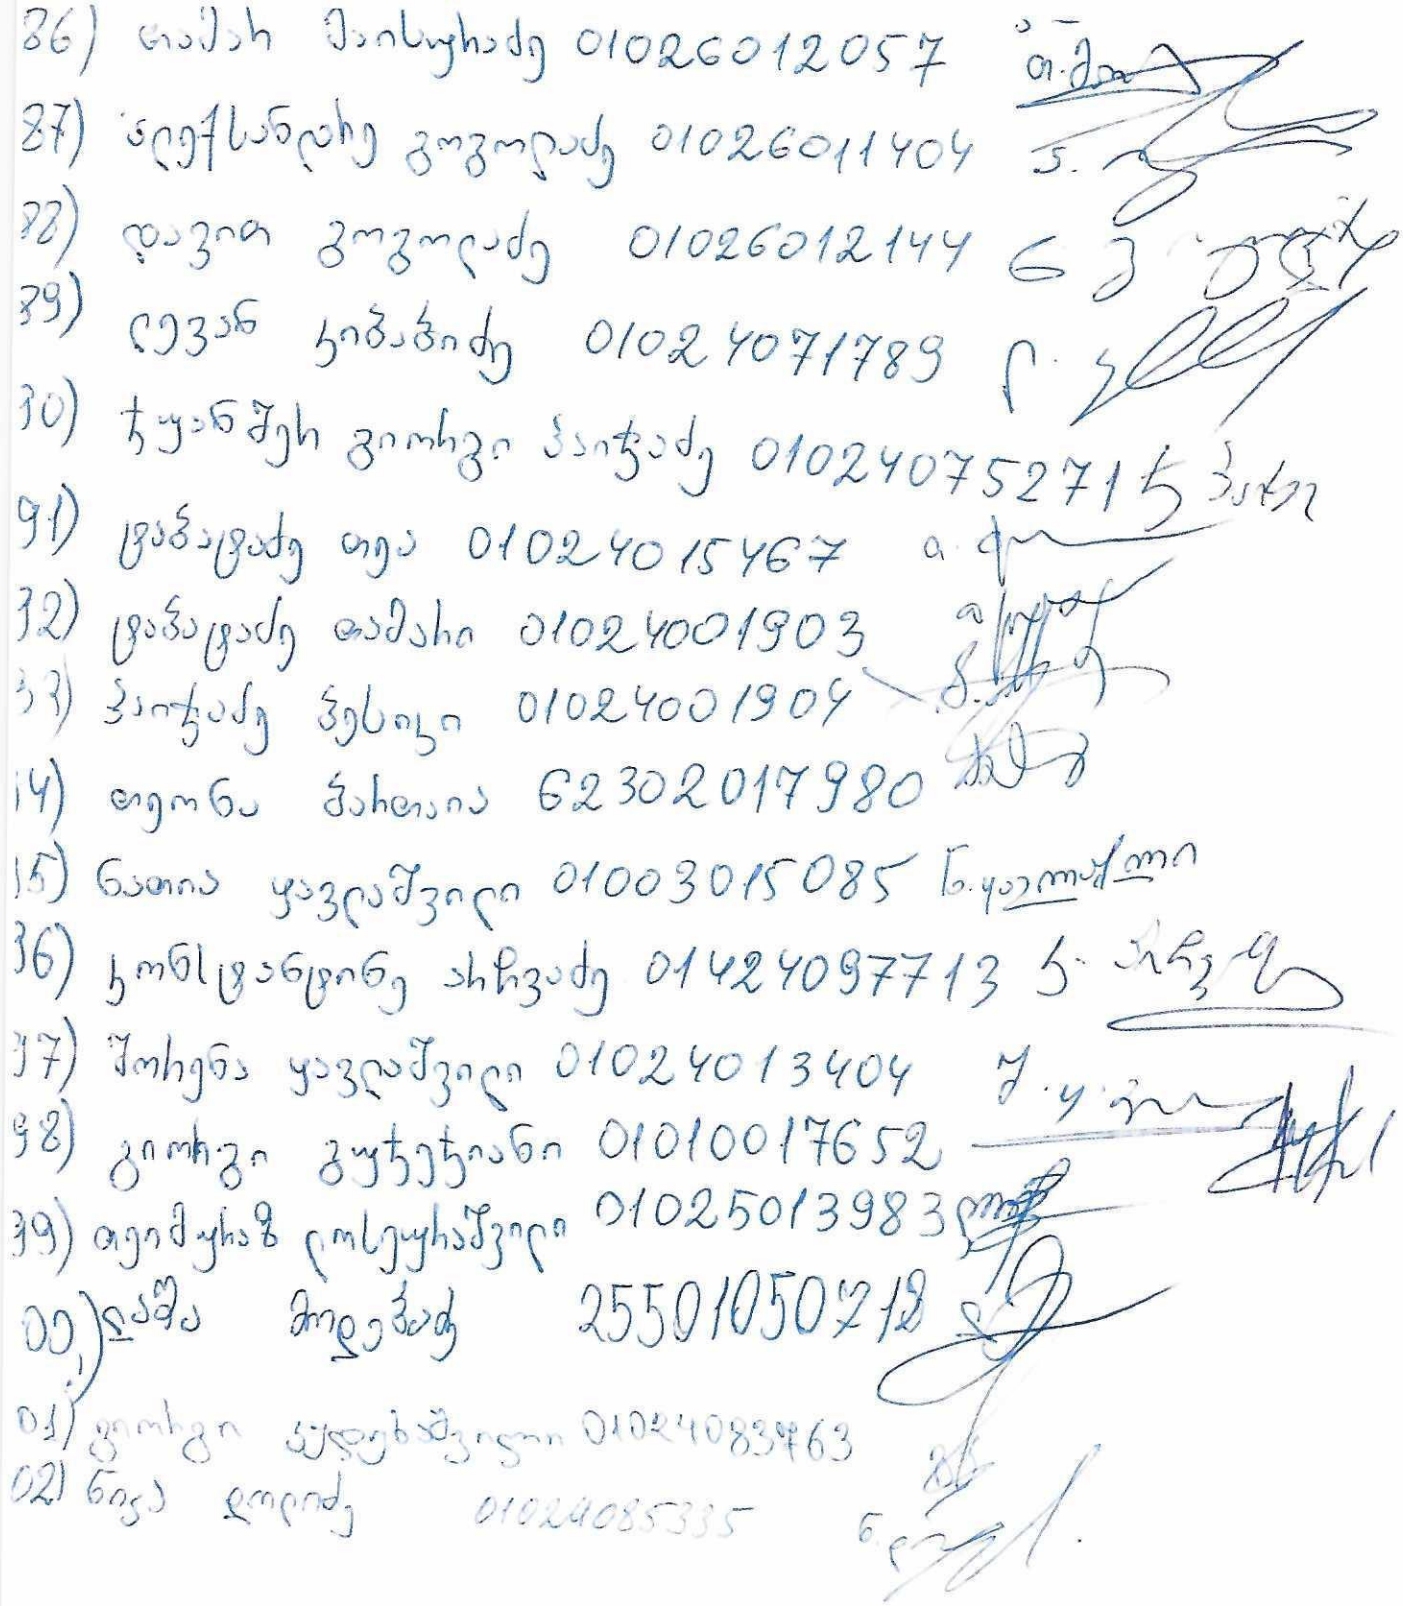 86) თამარ მაისურაძე 01026012057
87) ალექსანდრე გოგოლაძე 01026011404
88) დავით გოგოლაძე 01026012144
89) ლევან კიბაბიძე 01024071789
90) ჭყანშერ გიორგი პაიჭაძე 01024075271
91) ტაბატაძე თეა 01024015467
92) ტაბატაძე თამარი 01024001903
93) პაიჭაძე ბესიკი 01024001904
94) თეონა ბართაია 62302017980
95) ნათია ყავლაშვილი 01003015085
96) კონსტანტინე არჩვაძე 01424097713
97) შორენა ყავლაშვილი 01024013404
98) გიორგი გუჭეჭიანი 01010017652
99) თეიმურაზ ლოსეურაშვილი 01025013983
00) ლაშა 25501050718
01) გიორგი 01024083763
02) ნიკა დოლიძე 01024085335